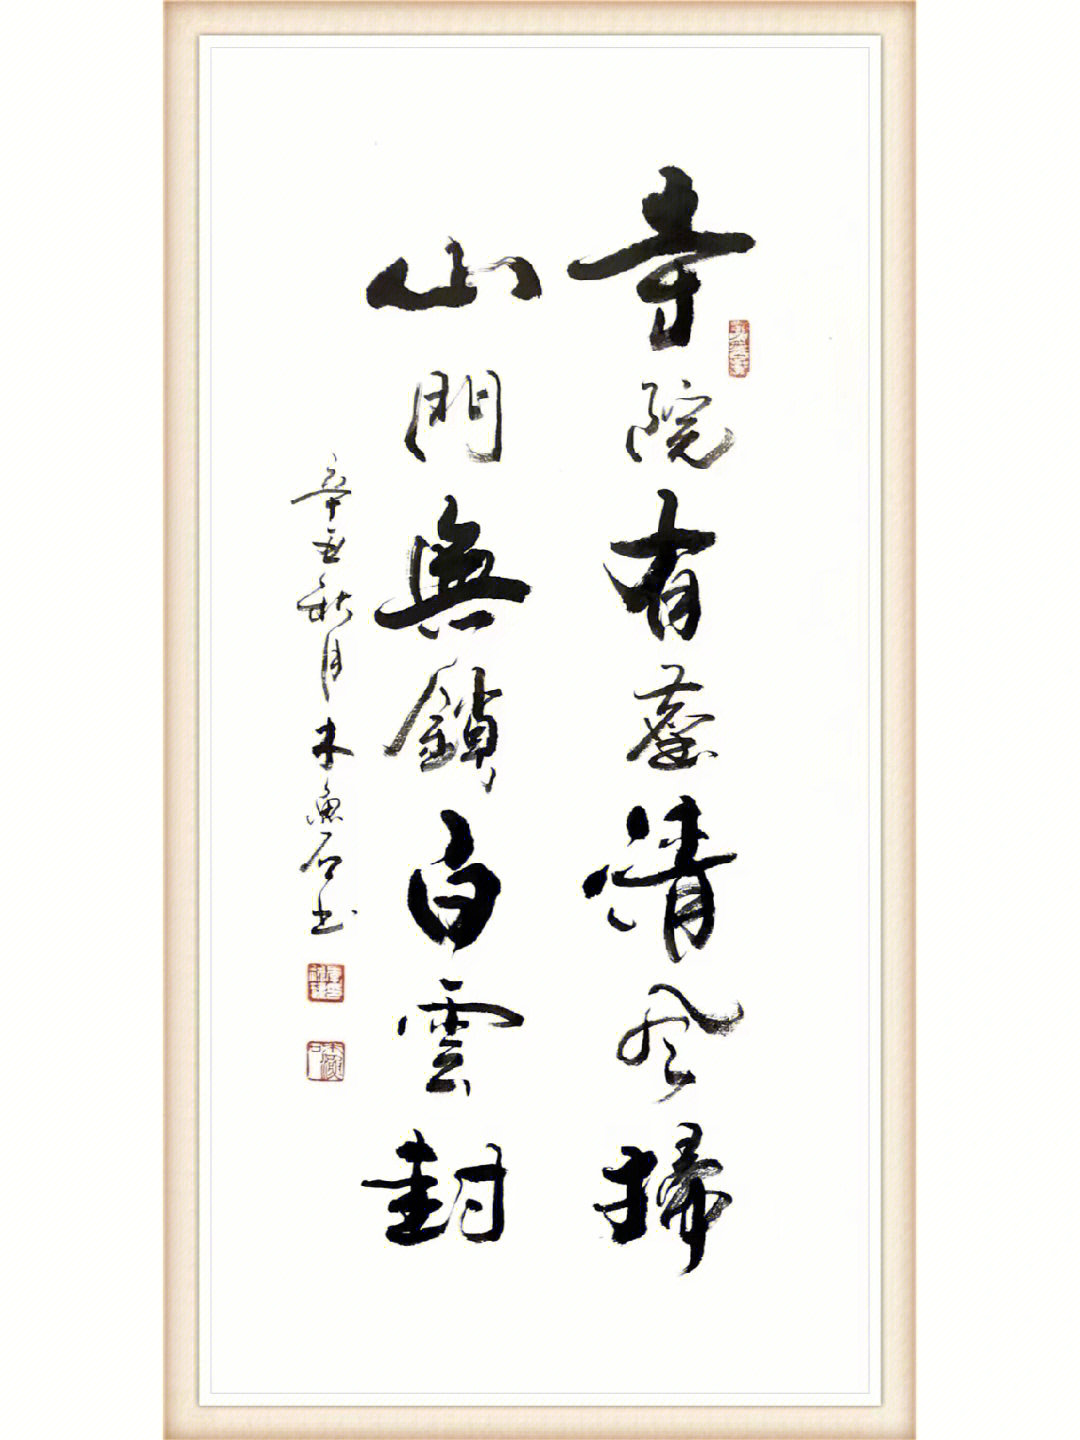 寺院有塵清風掃
山門無鎖白雲封
辛丑秋月木魚石书